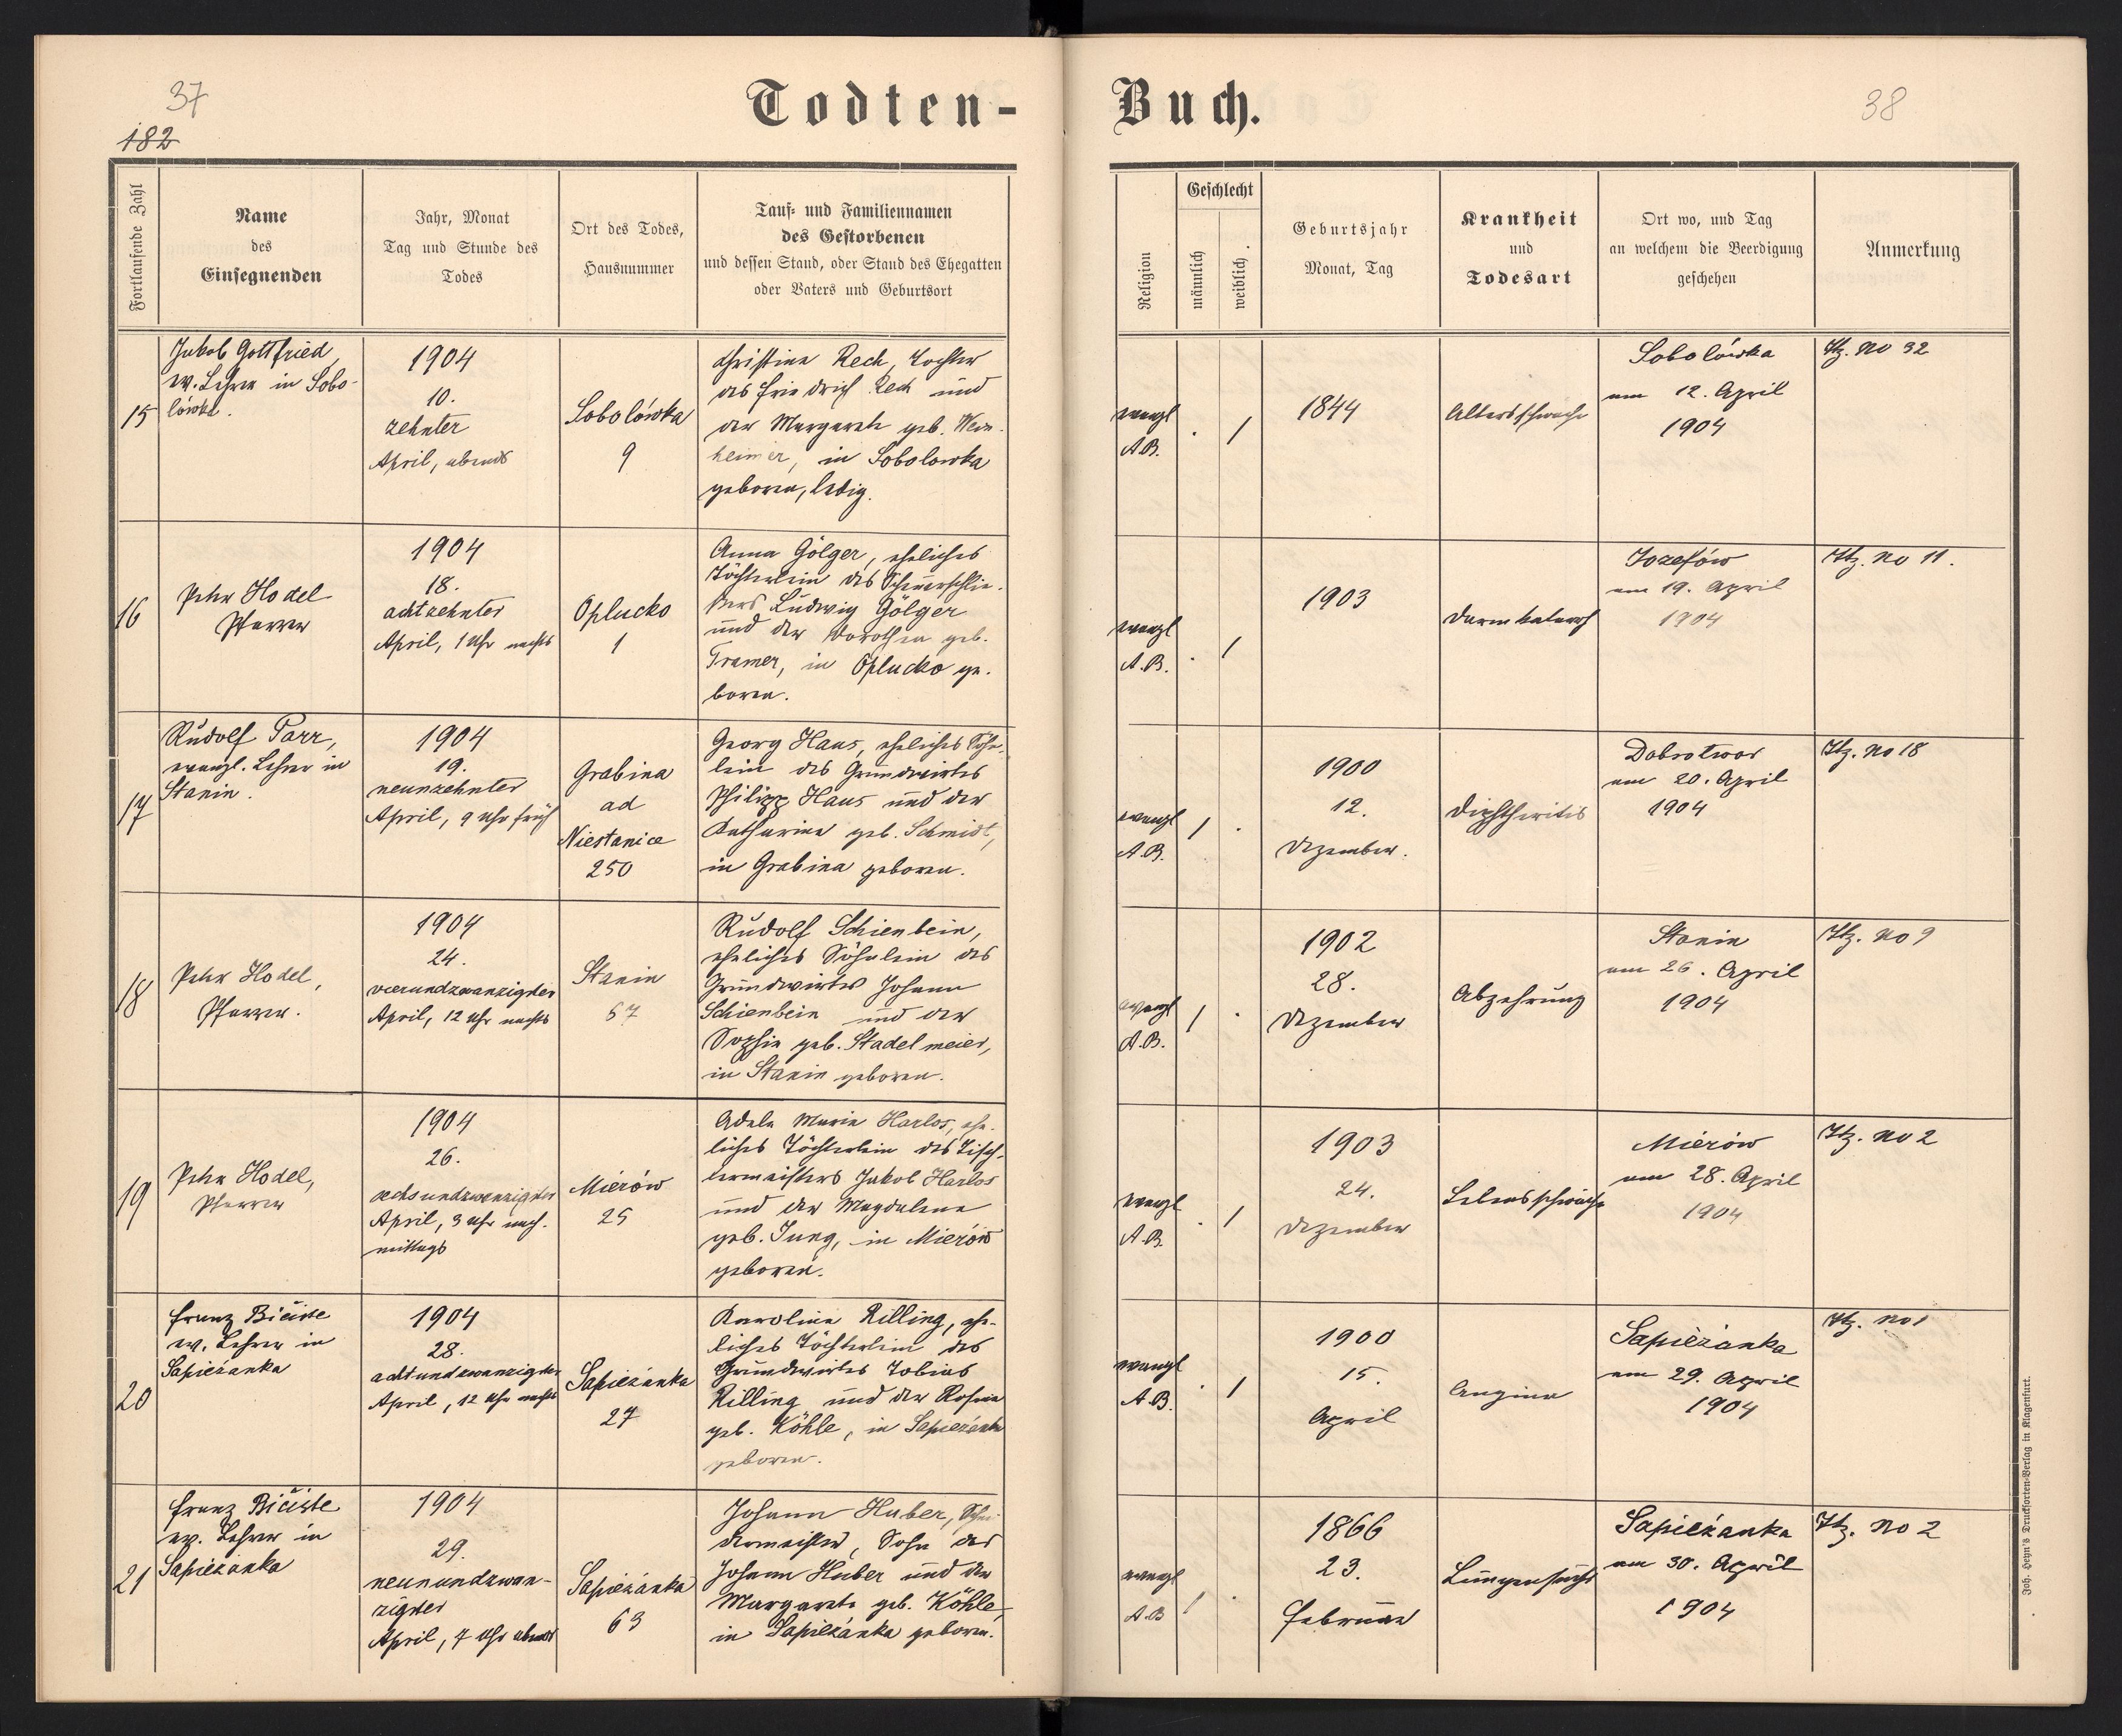 37
182
Todten-
Fortlaufende Zahl
Name
des
Einsegnenden
Jahr, Monat
Tag und Stunde des
Todes
Ort des Todes,
Hausnummer
Tauf- und Familiennamen
des Gestorbenen
und dessen Stand, oder Stand des Ehegatten
oder Vaters und Geburtsort
15
Jakob Gottfried,
ev. Lehrer in Sobo-
lówka.
1904
10.
zehnter
April, abends
Sobolówka
9
Christine Rech, Tochter
des Friedrich Rech und
der Margarete geb. Wein-
heimer, in Sobolowka
geboren, ledig.
16
Peter Hodel
Pfarrer
1904
18.
achtzehnter
April, 1 Uhr nachts
Oplucko
1
Anna Gölger, eheliches
Töchterlein des
Ludwig Gölger
und der Dorothea geb.
Tramer, in Oplucko ge-
boren.
17
Rudolf Parr,
evangl. Lehrer in
Stanin.
1904
19.
neunzehnter
April, 9 Uhr früh
Grabina
ad
Niestanice
250
Georg Haus, eheliches Söhn-
lein des Grundwirtes
Philipp Haus und der
Katharina geb. Schmidt,
in Grabina geboren.
18
Peter Hodel,
Pfarrer.
1904
24.
vierundzwanzigster
April, 12 Uhr nachts
Stanin
67
Rudolf Schienbein,
eheliches Söhnlein des
Grundwirtes Johann
Schienbein und der
Sophie geb. Stadelmeier,
in Stanin geboren.
19
Peter Hodel,
Pfarrer
1904
26.
sechsundzwanzigster
April, 3 Uhr nach-
mittags
Mierów
25
Adele Maria Harlos, ehe-
liches Töchterlein des Tisch-
lermeisters Jakob Harlos
und der Magdalena
geb. Jung, in Mierów
geboren.
20
Franz Bičiste
ev. Lehrer in
Sapieżanka
1904
28.
achtundzwanzigster
April, 12 Uhr nachts
Sapieżanka
27
Karoline Rilling, ehe-
liches Töchterlein des
Grundwirtes Tobias
Rilling und der Rosina
geb. Köhle, in Sapieżanka
geboren.
21
Franz Bičiste
ev. Lehrer in
Sapieżanka
1904
29.
neunundzwan-
zigster
April, 7 Uhr abends
Sapieżanka
63
Johann Huber,
Sohn des
Johann Huber und der
Margarete geb. Köhle,
in Sapieżanka geboren.
Buch.
38
Religion
Geschlecht
männlich
weiblich.
Geburtsjahr
Monat, Tag
Krankheit
und
Todesart
Ort wo, und Tag
an welchem die Beerdigung
geschehen
Anmerkung
evangl
A.B.
. /
1844
Altersschwäche
Sobolówka
am 12. April
1904
Itz. No 32
evangl
A.B.
. /
1903
Darmkatarrh
Jozefów
am 19. April
1904
Itz. No 11.
evangl
A.B.
/ .
1900
12.
Dezember.
Diphtheritis
Dobrotwor
am 20. April
1904
Itz. No 18
evangl
A.B.
/ .
1902
28.
Dezember
Abzehrung
Stanin
am 26. April
1904
Itz. No 9
evangl
A.B.
. /
1903
24.
Dezember
Lebensschwäche
Mierów
am 28. April
1904
Itz. No 2
evangl
A.B.
. /
1900
15.
April
Angina
Sapieżanka
am 29. April
1904
Itz. No 1
evangl
A.B
/ .
1866
23.
Februar
Lungensucht
Sapieżanka
am 30. April
1904
Itz. No 2
Joh. Heyn's Drucksorten-Verlag in Klagenfurt.